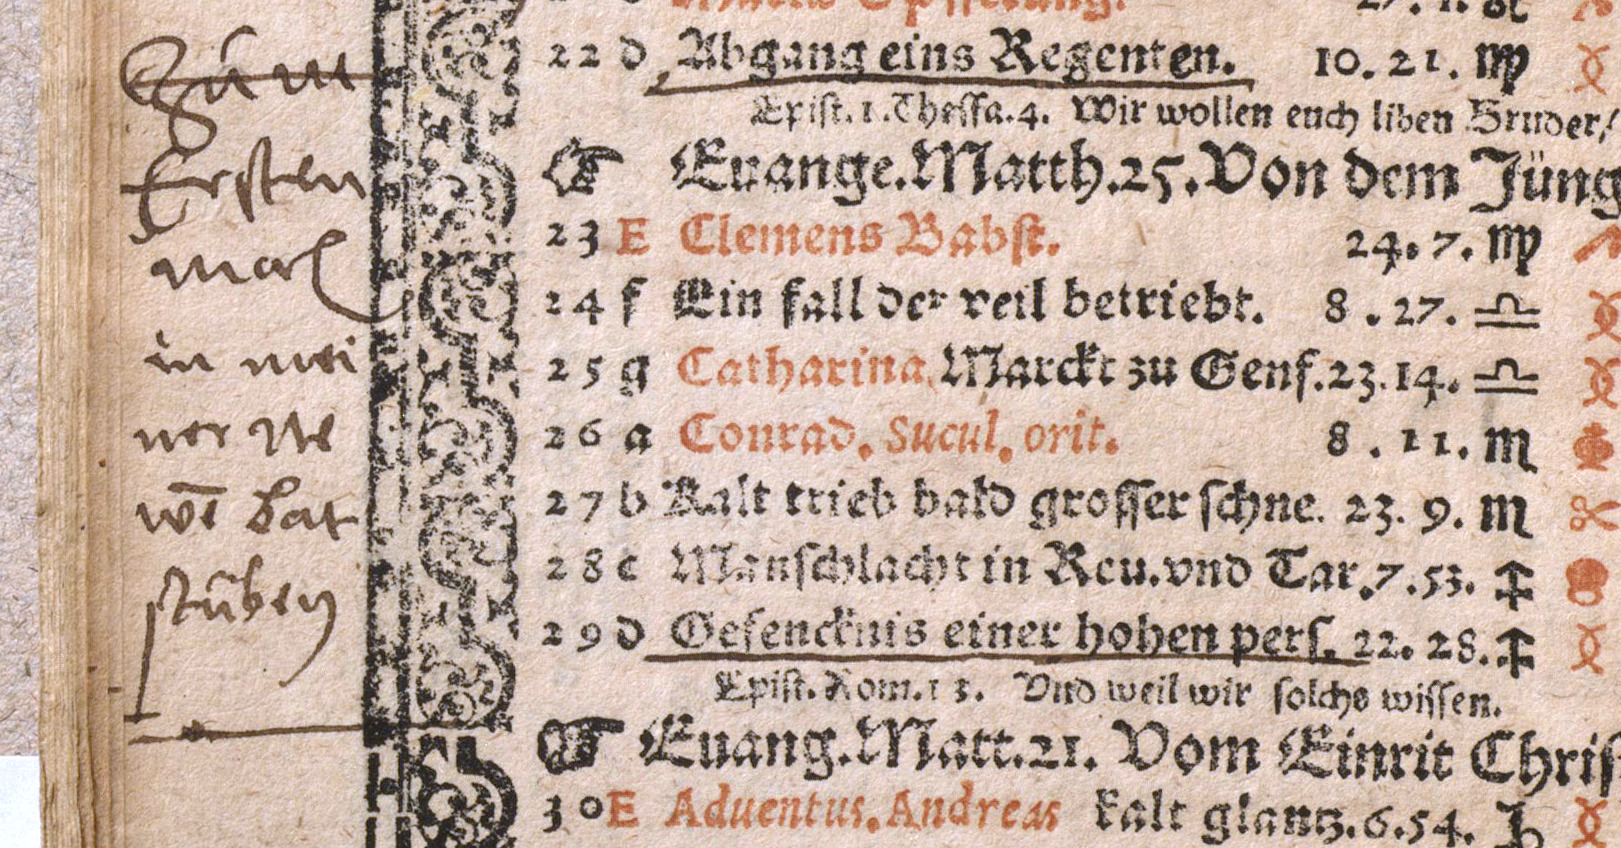 Zum
Ersten
mal
in mei
ner Ne
wē bat
stuben
22 d Abgang eins Regenten. 10. 21. ♍
Epist. 1. Thessa. 4. Wir wollen euch liben Bruder/
☞ Euange. Matth. 25. Von dem Jüng
23 E Clemens Babst. 24. 7. ♍
24 f Ein fall der veil betriebt. 8. 27. ♎
25 g Catharina. Marckt zu Genf. 23. 14. ♎
26 a Conrad. Sucul. orit. 8. 11. ♏
27 b Kalt trieb bald grosser schne. 23. 9. ♏
28 c Manschlacht in Reu. vnd Tar. 7. 53. ♐
29 d Gefencknis einer hohen pers. 22. 28. ♐
Epist. Rom. 13. Vnd weil wir solchs wissen.
☞ Euang. Matt. 21. Vom Einrit Chris
30 E Aduentus. Andreas kalt glantz. 6. 54. ♑